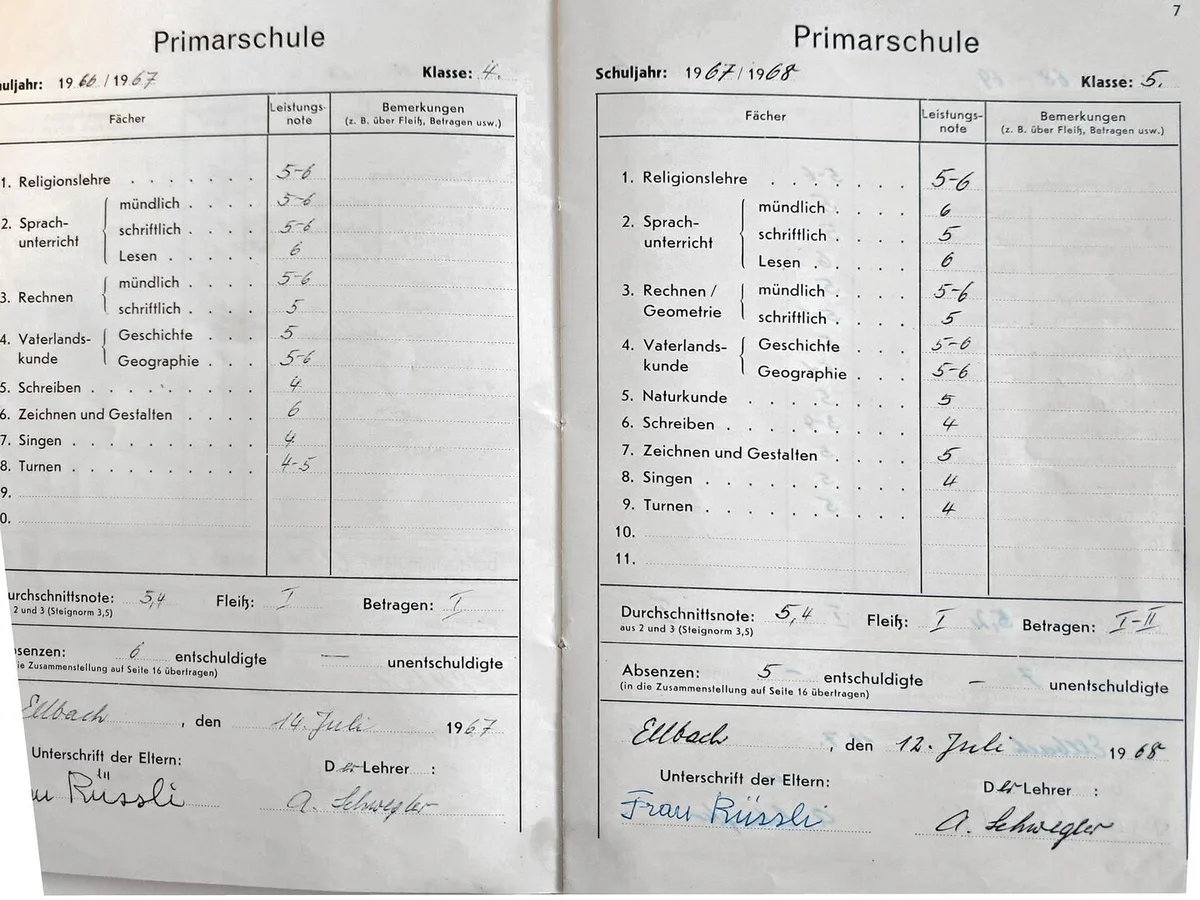 Primarschule
uljahr: 1966/1967 Klasse: 4.
Fächer Leistungs-note Bemerkungen
(z. B. über Fleiß, Betragen usw.)
1. Religionslehre . . . . . . 5-6
2. Sprach-unterricht mündlich . . . . 5-6
schriftlich . . . . 5-6
Lesen . . . . . 6
3. Rechnen mündlich . . . . 5-6
schriftlich . . . . 5
4. Vaterlands-kunde Geschichte . . . 5
Geographie . . . 5-6
5. Schreiben . . . . . . . 4
6. Zeichnen und Gestalten . . . . 6
7. Singen . . . . . . . . 4
8. Turnen . . . . . . . . 4-5
9.
0.
urchschnittsnote: 5,4 Fleiß: I Betragen: I
2 und 3 (Steignorm 3,5)
senzen: 6 entschuldigte — unentschuldigte
ie Zusammenstellung auf Seite 16 übertragen)
Ellbach, den 14. Juli 1967
Unterschrift der Eltern: Der Lehrer :
au Rüssli A. Schwegler
7
Primarschule
Schuljahr: 1967/1968 Klasse: 5.
Fächer Leistungs-note Bemerkungen
(z. B. über Fleiß, Betragen usw.)
1. Religionslehre . . . . . . 5-6
2. Sprach-unterricht mündlich . . . . 6
schriftlich . . . . 5
Lesen . . . . . 6
3. Rechnen / Geometrie mündlich . . . . 5-6
schriftlich . . . . 5
4. Vaterlands-kunde Geschichte . . . 5-6
Geographie . . . 5-6
5. Naturkunde . . . . . . 5
6. Schreiben . . . . . . . 4
7. Zeichnen und Gestalten . . . . 5
8. Singen . . . . . . . . 4
9. Turnen . . . . . . . . 4
10.
11.
Durchschnittsnote: 5,4 Fleiß: I Betragen: I-II
aus 2 und 3 (Steignorm 3,5)
Absenzen: 5 entschuldigte — unentschuldigte
(in die Zusammenstellung auf Seite 16 übertragen)
Ellbach, den 12. Juli 1968
Unterschrift der Eltern: Der Lehrer :
Frau Rüssli A. Schwegler